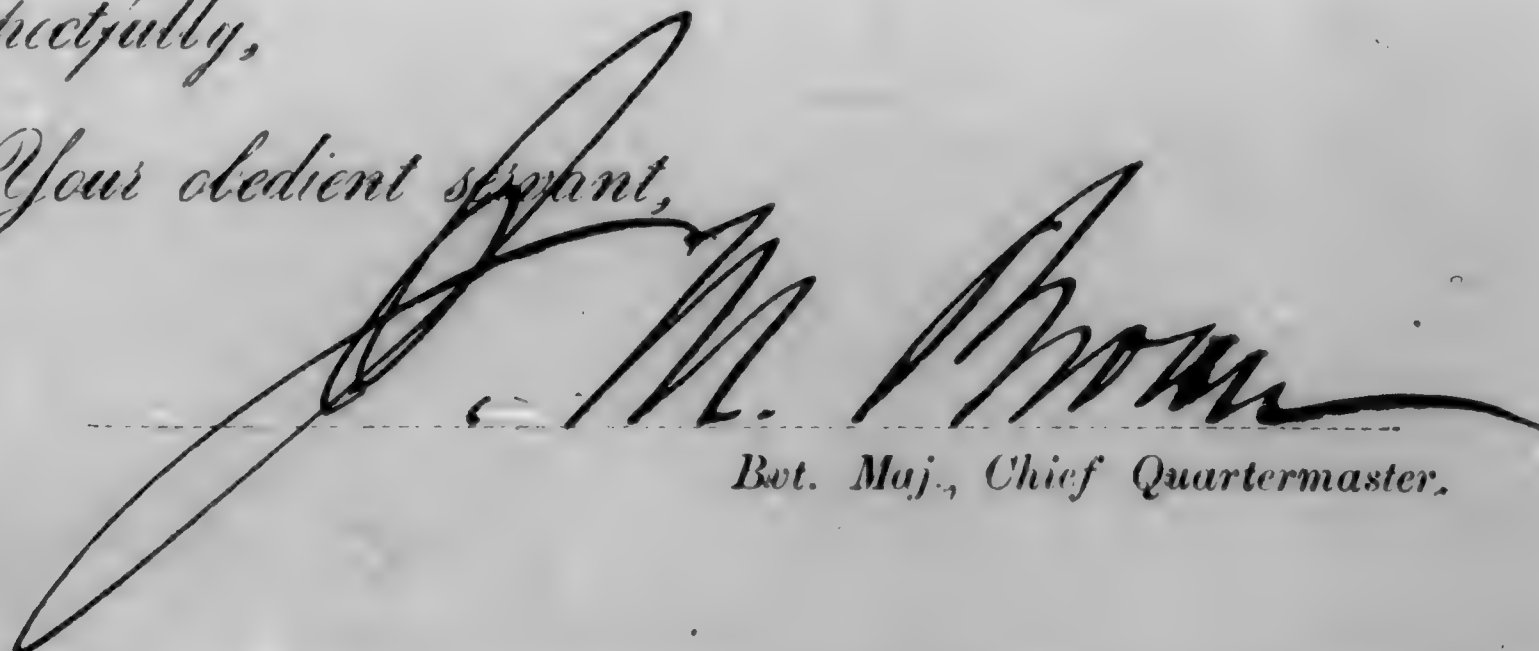 pectfully,
Your obedient servant,
J. M. Brown
Bvt. Maj., Chief Quartermaster.